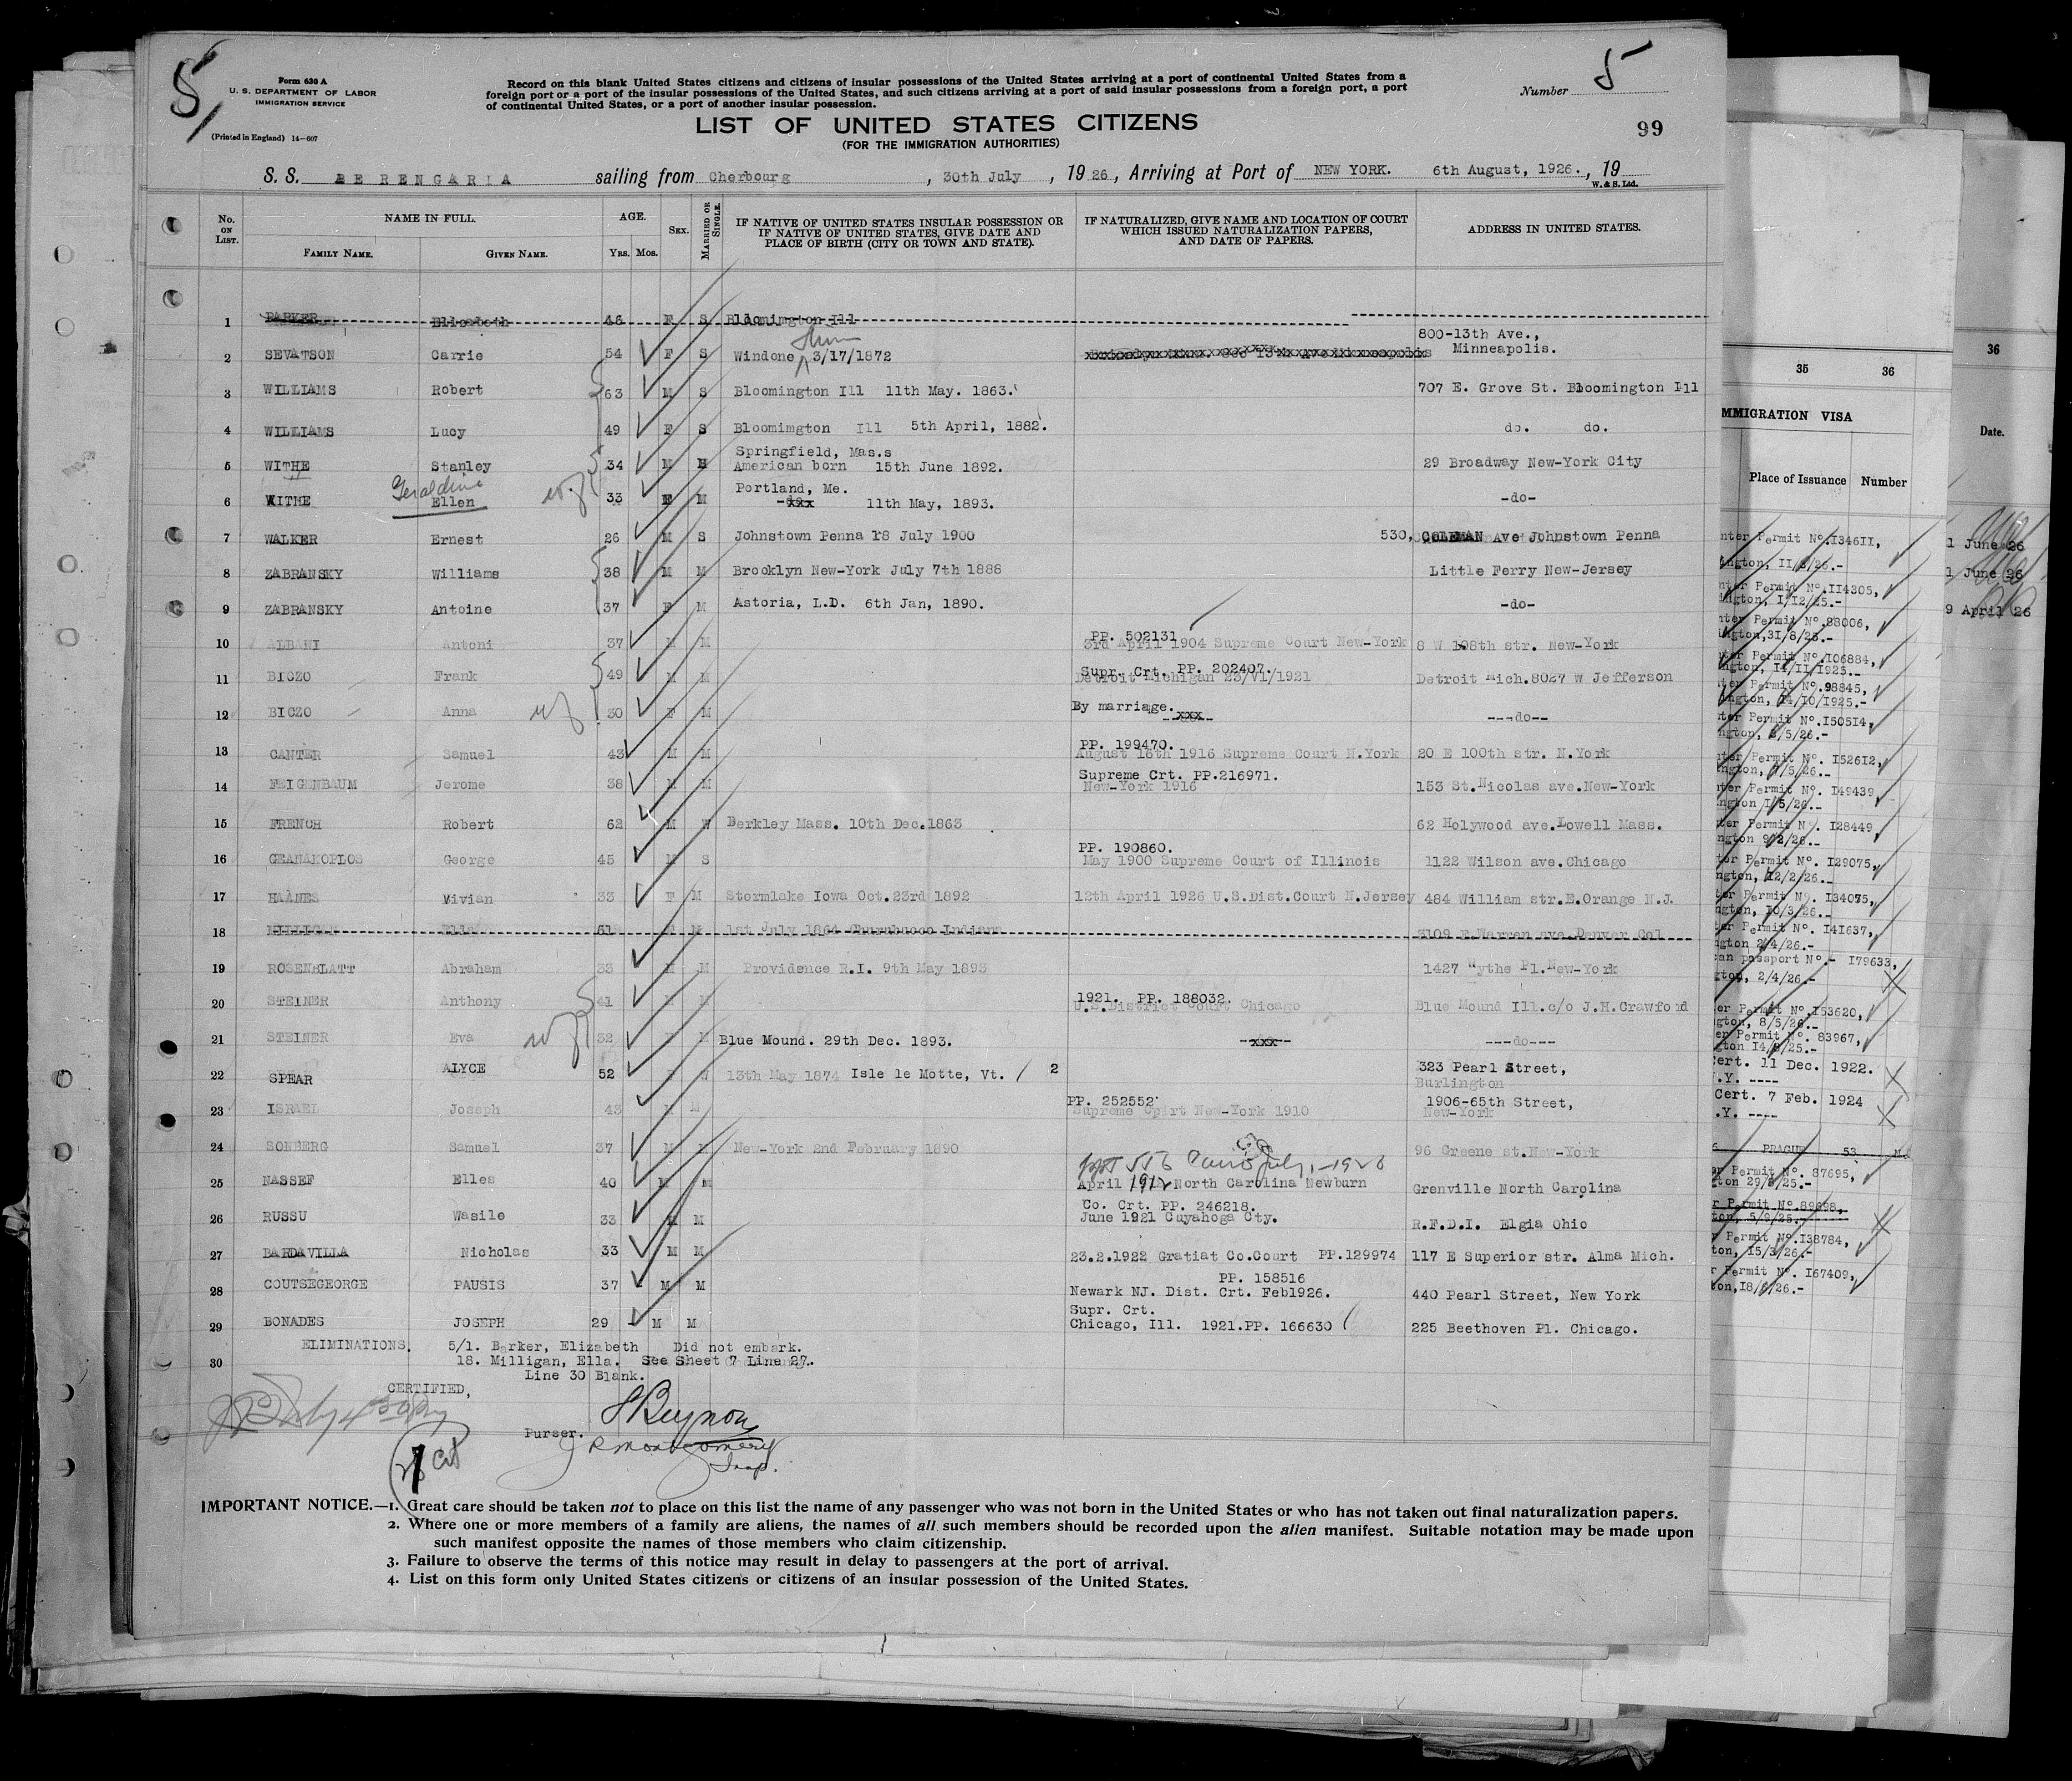 5/
5
Form 630 A
U. S. DEPARTMENT OF LABOR
IMMIGRATION SERVICE
(Printed in England) 14—607
Record on this blank United States citizens and citizens of insular possessions of the United States arriving at a port of continental United States from a
foreign port or a port of the insular possessions of the United States, and such citizens arriving at a port of said insular possessions from a foreign port, a port
of continental United States, or a port of another insular possession.
Number
LIST OF UNITED STATES CITIZENS
(FOR THE IMMIGRATION AUTHORITIES)
99
S. S. BERENGARIA sailing from Cherbourg, 30th July, 1926, Arriving at Port of NEW YORK. 6th August, 1926., 19
W. & S. Ltd.
No. ON LIST. NAME IN FULL. AGE. SEX. MARRIED OR SINGLE. IF NATIVE OF UNITED STATES INSULAR POSSESSION OR IF NATIVE OF UNITED STATES, GIVE DATE AND PLACE OF BIRTH (CITY OR TOWN AND STATE). IF NATURALIZED, GIVE NAME AND LOCATION OF COURT WHICH ISSUED NATURALIZATION PAPERS, AND DATE OF PAPERS. ADDRESS IN UNITED STATES.
FAMILY NAME. GIVEN NAME. YRS. MOS.
1 BARKER Elizabeth 46 F S Bloomington Ill
2 SEVATSON Carrie 54 F S Windone 3/17/1872 800-13th Ave., Minneapolis.
3 WILLIAMS Robert 63 M S Bloomington Ill 11th May. 1863. 707 E. Grove St. Bloomington Ill
4 WILLIAMS Lucy 49 F S Bloomimgton Ill 5th April, 1882. do. do.
5 WITHE Stanley 34 M M Springfield, Mas.s American born 15th June 1892. 29 Broadway New-York City
6 WITHE Geraldine Ellen 33 F M Portland, Me. 11th May, 1893. -do-
7 WALKER Ernest 26 M S Johnstown Penna 18 July 1900 530, COLEMAN Ave Johnstown Penna
8 ZABRANSKY Williams 38 M M Brooklyn New-York July 7th 1888 Little Ferry New-Jersey
9 ZABRANSKY Antoine 37 F M Astoria, L.D. 6th Jan, 1890. -do-
10 ALBANI Antoni 37 M M PP. 502131 3rd April 1904 Supreme Court New-York 8 W 108th str. New-York
11 BICZO Frank 49 M M Supr. Crt. PP. 202407. Detroit Michigan 23/VI/1921 Detroit Mich.8027 W Jefferson
12 BICZO Anna 30 F M By marriage. xxx ---do--
13 CANTER Samuel 43 M M PP. 199470. August 18th 1916 Supreme Court N.York 20 E 100th str. N.York
14 FEIGENBAUM Jerome 38 M M Supreme Crt. PP.216971. New-York 1916 153 St.Nicolas ave.New-York
15 FRENCH Robert 62 M W Berkley Mass. 10th Dec.1863 62 Holywood ave.Lowell Mass.
16 GEANAKOPLOS George 45 M S PP. 190860. May 1900 Supreme Court of Illinois 1122 Wilson ave.Chicago
17 HAANES Vivian 33 F M Stormlake Iowa Oct.23rd 1892 12th April 1926 U.S.Dist.Court N.Jersey 484 William str.E.Orange N.J.
18 MILLIGAN Ella 61 F M 1st July 1864 Churubusco Indiana 3109 E Warren ave Denver Col
19 ROSENBLATT Abraham 33 M M Providence R.I. 9th May 1893 1427 Wythe Pl.New-York
20 STEINER Anthony 41 M M 1921. PP. 188032. U.S.District Court Chicago Blue Mound Ill.c/o J.H.Crawford
21 STEINER Eva 32 F M Blue Mound. 29th Dec. 1893. -xxx- ---do---
22 SPEAR ALYCE 52 F W 13th May 1874 Isle le Motte, Vt. / 2 323 Pearl Street, Burlington
23 ISRAEL Joseph 43 M M PP. 252552 Supreme Coirt New-York 1910 1906-65th Street, New-York
24 SONBERG Samuel 37 M M New-York 2nd February 1890 96 Greene st.New-York
25 NASSEF Elles 40 M M April 1912 North Carolina Newburn Grenville North Carolina
26 RUSSU Wasile 33 M M Co. Crt. PP. 246218. June 1921 Cuyahoga Cty. R.F.D.I. Elgia Ohio
27 BARDAVILLA Nicholas 33 M M 23.2.1922 Gratiat Co.Court PP.129974 117 E Superior str. Alma Mich.
28 COUTSEGEORGE PAUSIS 37 M M PP. 158516 Newark NJ. Dist. Crt. Feb1926. 440 Pearl Street, New York
29 BONADES JOSEPH 29 M M Supr. Crt. Chicago, Ill. 1921.PP. 166630 225 Beethoven Pl. Chicago.
30 ELIMINATIONS. 5/1. Barker, Elizabeth Did not embark.
18. Milligan, Ella. See Sheet 7 Line 27.
Line 30 Blank.
CERTIFIED,
Purser.
J R Montgomery
Insp.
IMPORTANT NOTICE.—1. Great care should be taken not to place on this list the name of any passenger who was not born in the United States or who has not taken out final naturalization papers.
2. Where one or more members of a family are aliens, the names of all such members should be recorded upon the alien manifest. Suitable notation may be made upon
such manifest opposite the names of those members who claim citizenship.
3. Failure to observe the terms of this notice may result in delay to passengers at the port of arrival.
4. List on this form only United States citizens or citizens of an insular possession of the United States.
35 36
MMIGRATION VISA
Place of Issuance Number
Permit No.I34611,
ington, II/3/26.-
Permit No.II4305,
ington, I/12/25.-
Permit No.88006,
ington,31/8/25.-
Permit No.I06884,
ngton, I4/II/1925.-
Permit No.98845,
ngton, I4/10/1925.-
Permit No.I50514,
ngton, 3/5/26.-
Permit No. I52612,
Permit No. I49439,
Permit No. I28449,
ngton 9/2/26.-
Permit No. I29075,
ngton, I2/2/26.-
Permit No. I34075,
ngton, I0/3/26.-
Permit No. I41637,
ngton 2/4/26.-
an passport No.- I79633,
gton, 2/4/26.-
er Permit No.I53620,
gton, 8/5/26.-
er Permit No. 83967,
gton I4/8/25.-
Cert. 11 Dec. 1922.
.Y. ----
Cert. 7 Feb. 1924
.Y. ----
PRAGUE 53
Permit No. 87695,
gton 29/8/25.-
r Permit No.89698,
ton, 5/9/25.-
Permit No.I38784,
ton, I5/3/26.-
r Permit No. I67409,
ton,I8/6/26.-
36
Date.
1 June 26
1 June 26
9 April 26